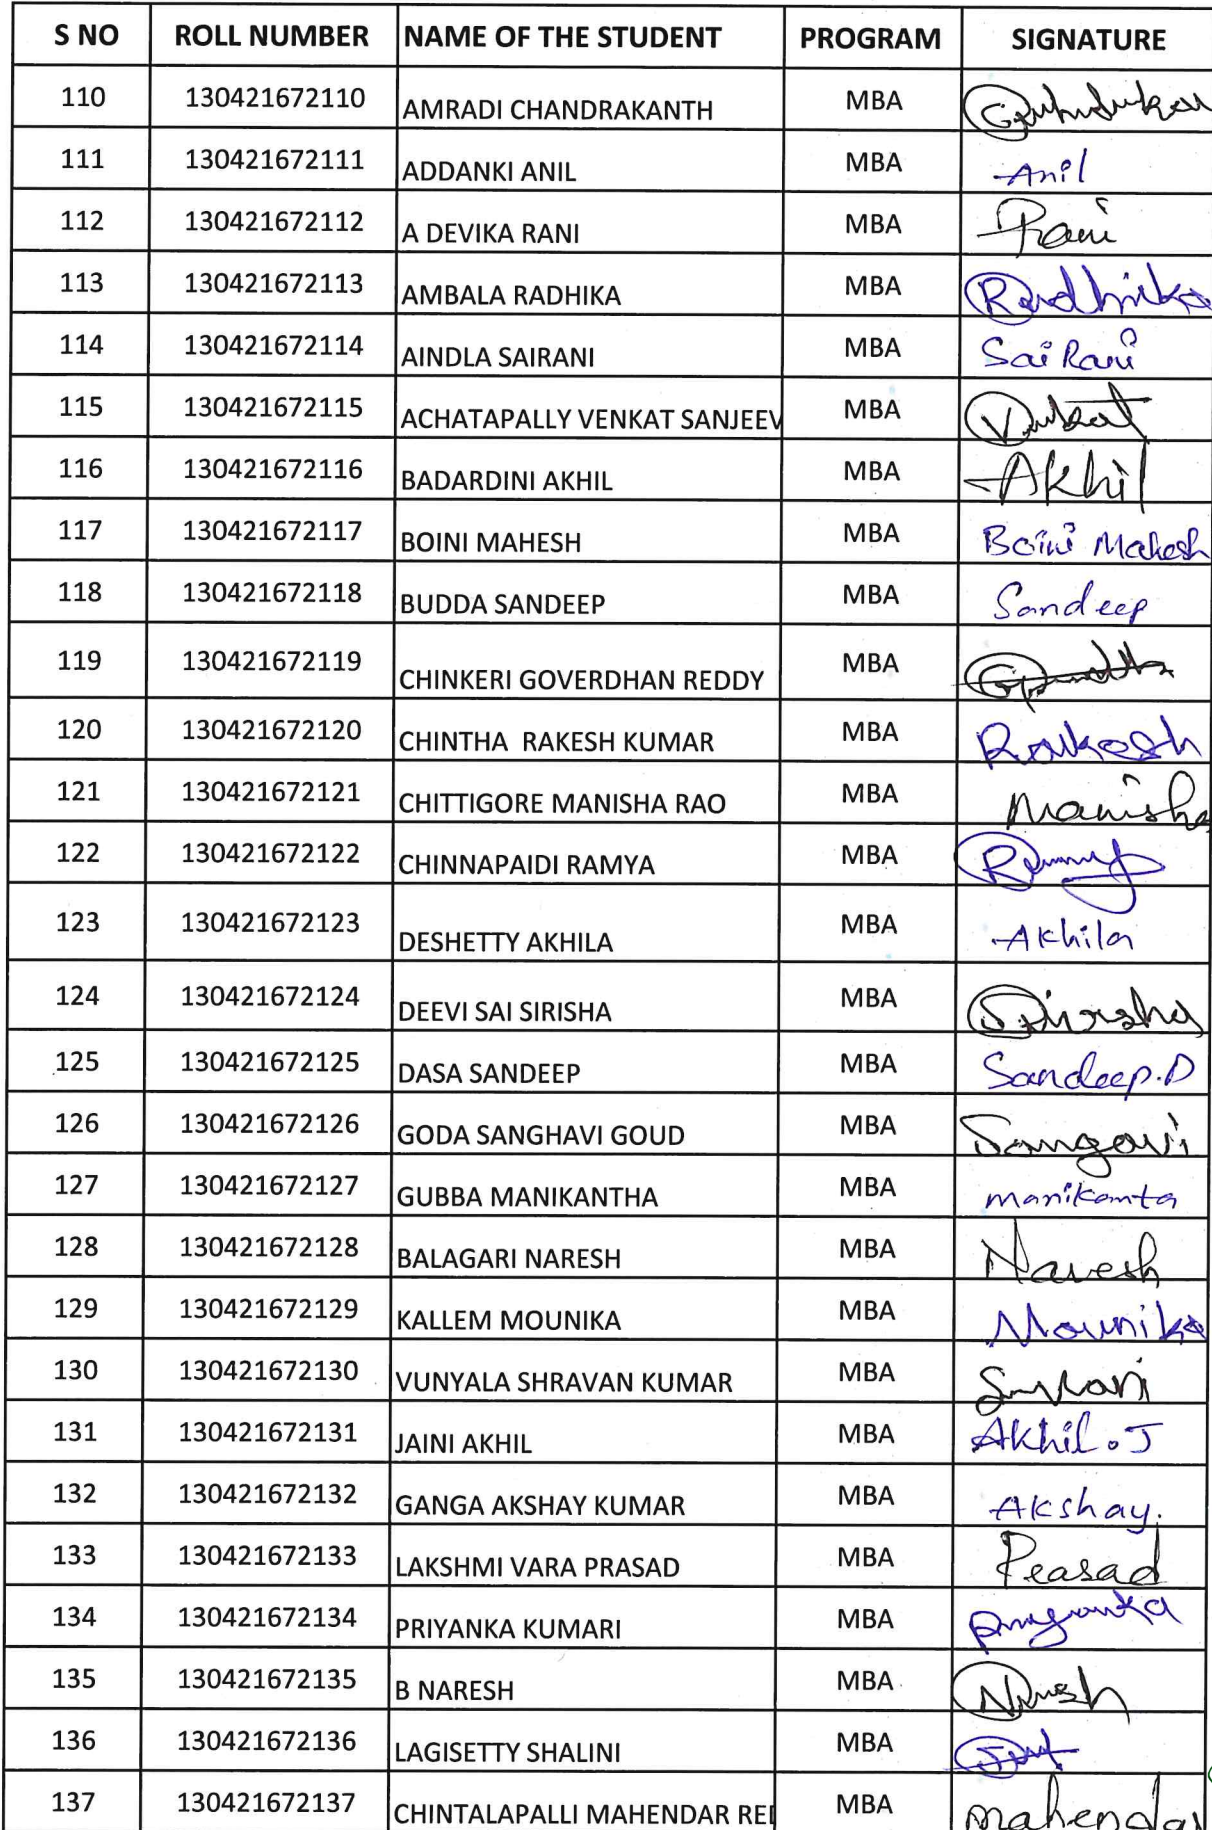 S NO ROLL NUMBER NAME OF THE STUDENT PROGRAM SIGNATURE
110 130421672110 AMRADI CHANDRAKANTH MBA
111 130421672111 ADDANKI ANIL MBA Anil
112 130421672112 A DEVIKA RANI MBA Rani
113 130421672113 AMBALA RADHIKA MBA Radhika
114 130421672114 AINDLA SAIRANI MBA Sai Rani
115 130421672115 ACHATAPALLY VENKAT SANJEEV MBA Venkat
116 130421672116 BADARDINI AKHIL MBA Akhil
117 130421672117 BOINI MAHESH MBA Boini Mahesh
118 130421672118 BUDDA SANDEEP MBA Sandeep
119 130421672119 CHINKERI GOVERDHAN REDDY MBA
120 130421672120 CHINTHA RAKESH KUMAR MBA Rakesh
121 130421672121 CHITTIGORE MANISHA RAO MBA Manisha
122 130421672122 CHINNAPAIDI RAMYA MBA
123 130421672123 DESHETTY AKHILA MBA Akhila
124 130421672124 DEEVI SAI SIRISHA MBA
125 130421672125 DASA SANDEEP MBA Sandeep.D
126 130421672126 GODA SANGHAVI GOUD MBA Sangavi
127 130421672127 GUBBA MANIKANTHA MBA manikanta
128 130421672128 BALAGARI NARESH MBA Naresh
129 130421672129 KALLEM MOUNIKA MBA Mounika
130 130421672130 VUNYALA SHRAVAN KUMAR MBA
131 130421672131 JAINI AKHIL MBA Akhil.J
132 130421672132 GANGA AKSHAY KUMAR MBA Akshay.
133 130421672133 LAKSHMI VARA PRASAD MBA Prasad
134 130421672134 PRIYANKA KUMARI MBA Priyanka
135 130421672135 B NARESH MBA
136 130421672136 LAGISETTY SHALINI MBA
137 130421672137 CHINTALAPALLI MAHENDAR RED MBA mahendar